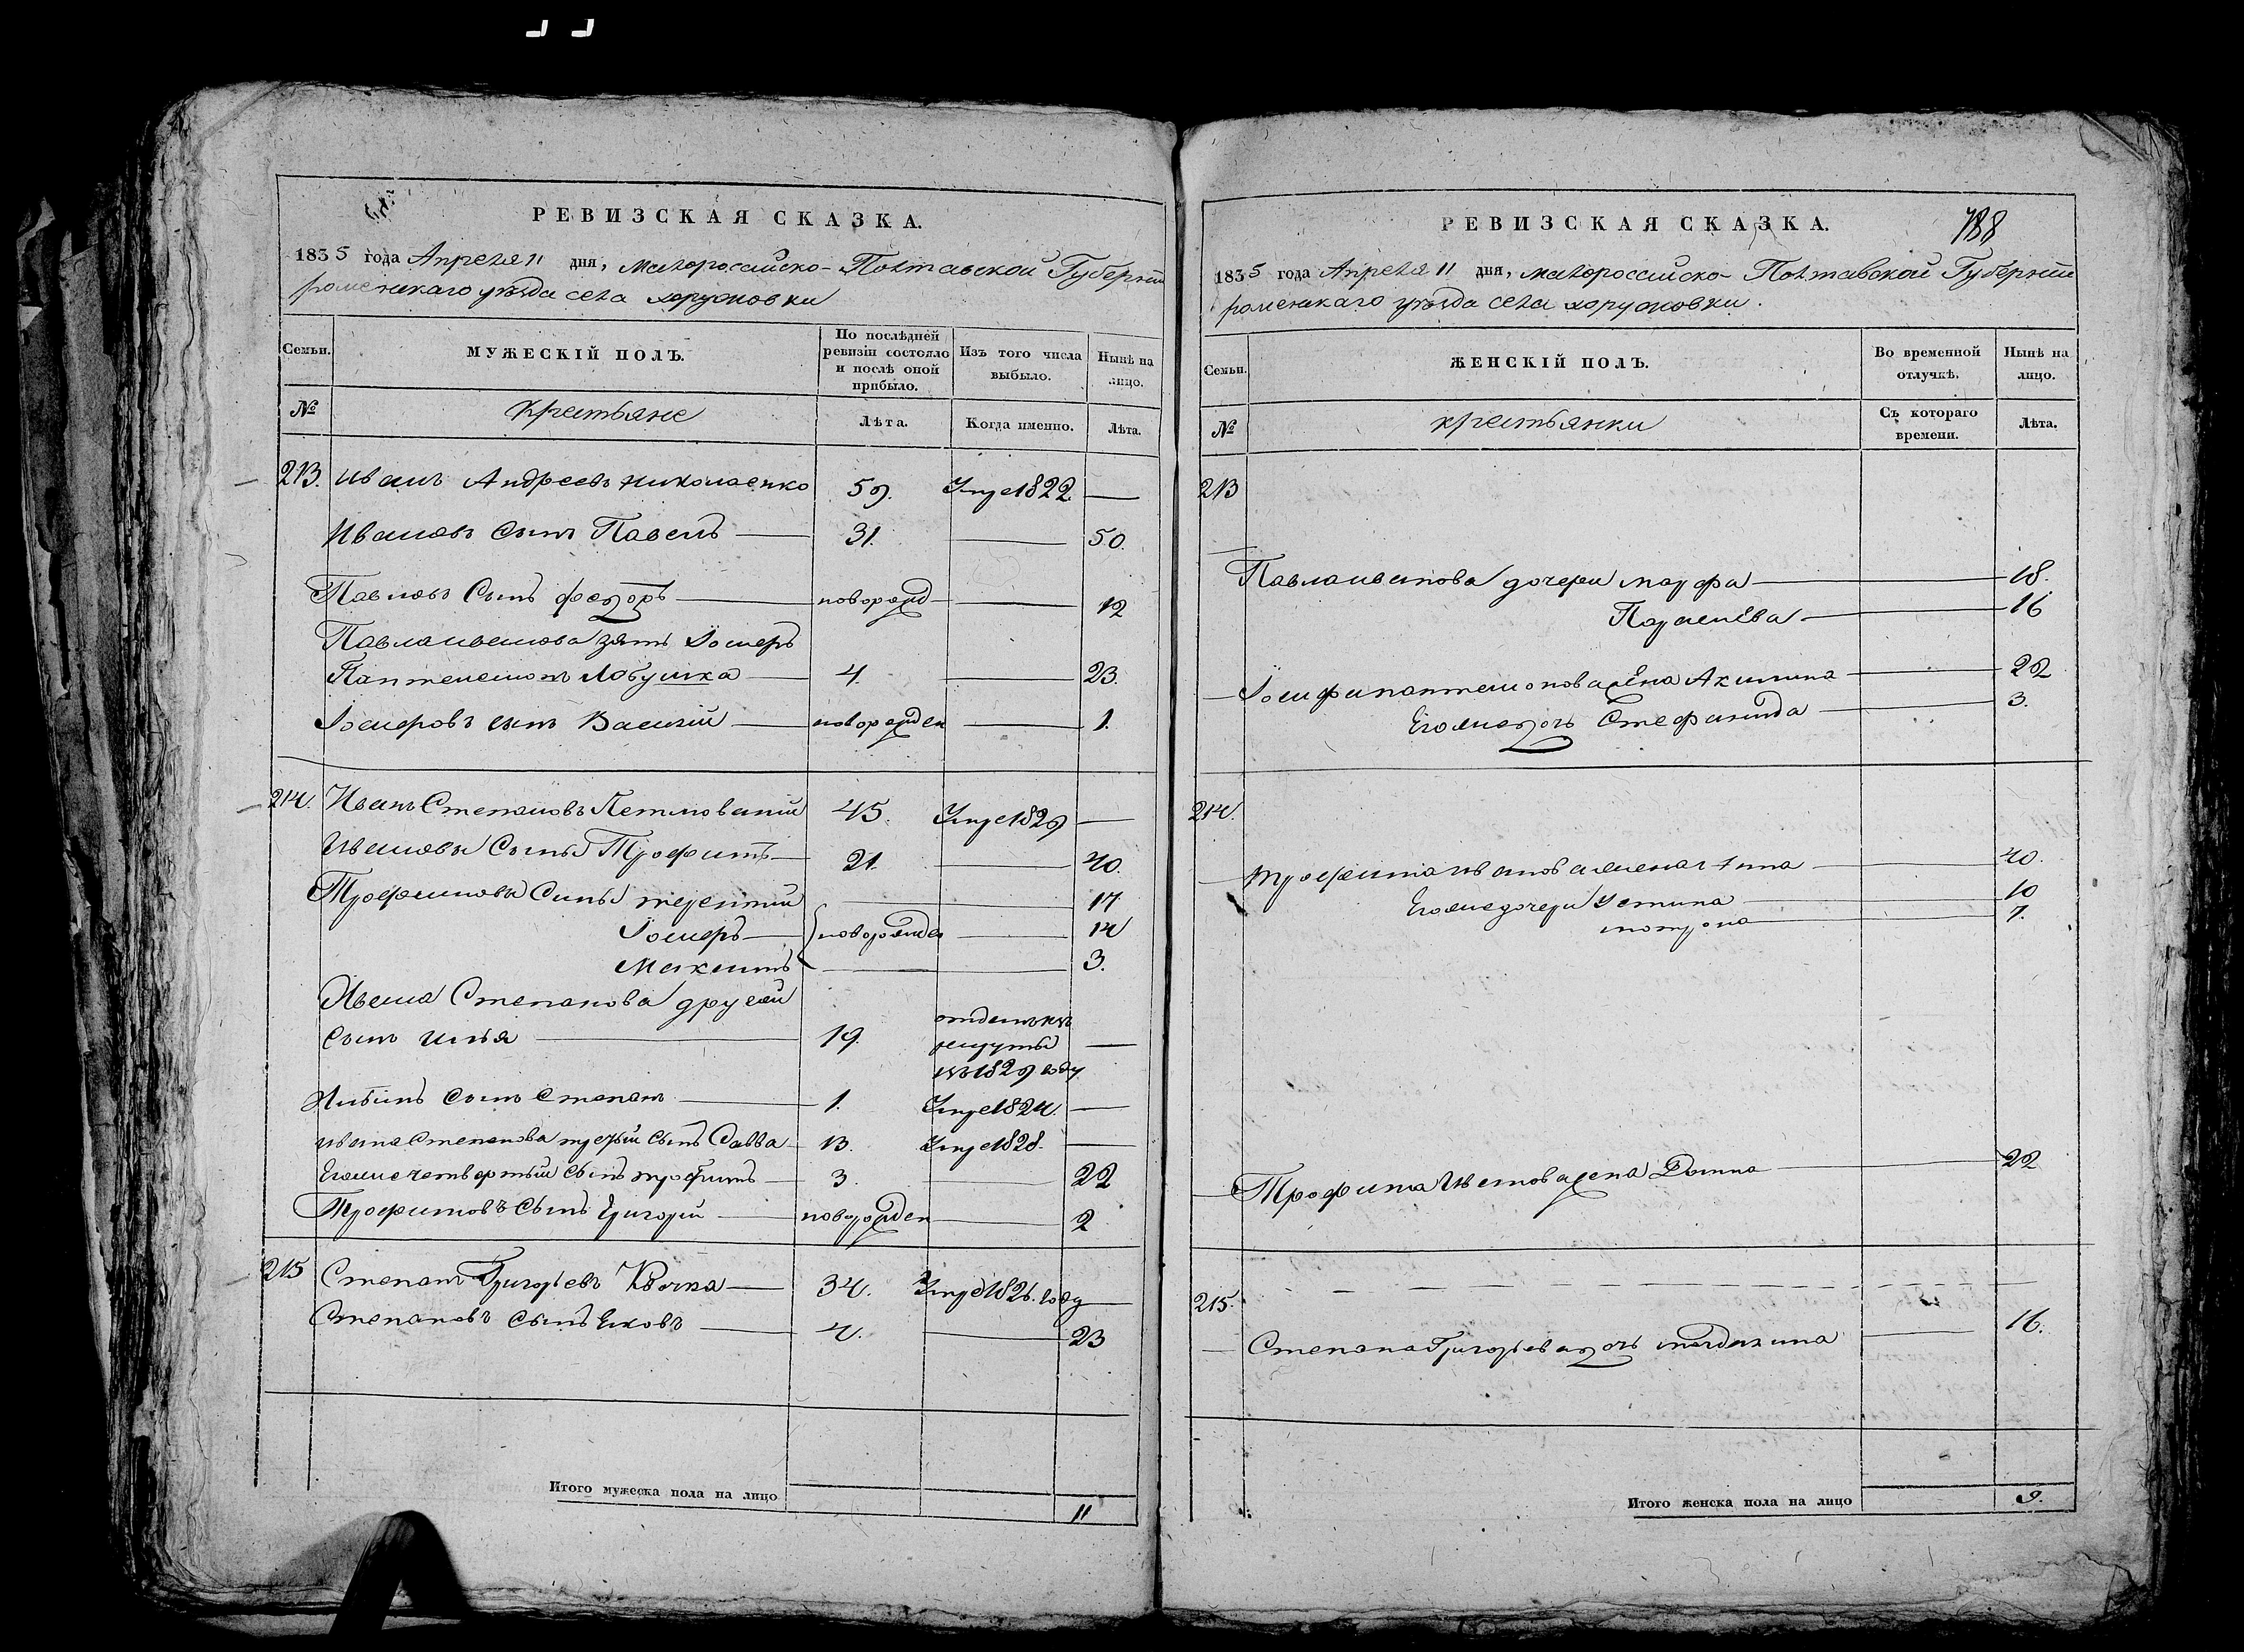 РЕВИЗСКАЯ СКАЗКА.
1835 года Апреля 11 дня, малороссийско-Полтавской Губернии
роменскаго уѣзда села хоружовки
Семьи.
МУЖЕСКІЙ ПОЛЪ.
По послѣдней ревизіи состояло и послѣ оной прибыло.
Изъ того числа выбыло.
Нынѣ на лицо.
№
крестьяне
Лѣта.
Когда именно.
Лѣта.
213. иванъ Андреевъ николаенко 59. Умре 1822
Ивановъ сынъ Павелъ 31. 50.
Павловъ Сынъ федоръ новорожд 12
Павлаиванова зять Іосифъ
Пантелемонъ Лобушка 4. 23.
Іосифовъ сынъ Василий новорожден 1.
214. Иванъ Степановъ Петлюваний 45. Умре 1829
Ивановы Сыны Трофимъ 21. 40.
Трофимовы Сыны терентий 17
Іосифъ новорожден 14
Максимъ 3.
Ивана Степанова другий
сынъ илья 19. отданъ въ
рекруты
въ 1829 году
Ильинъ сынъ степанъ 1. Умре 1824.
ивана Степанова третий сынъ Савва 13. Умре 1828.
Егоже четвертый сынъ трофимъ 3. 22
Трофимовъ сынъ Григорий новорожден 2
215 Степанъ Григорьевъ Квочка 34. Умре 1826. году
Степановъ сынъ Яковъ 4. 23
Итого мужеска пола на лицо 11
РЕВИЗСКАЯ СКАЗКА. 788
1835 года Апреля 11 дня, малороссийско-Полтавской Губернии
роменскаго уѣзда села хоружовки.
Семьи.
ЖЕНСКІЙ ПОЛЪ.
Во временной отлучкѣ.
Нынѣ на лицо.
№
крестьянки
Съ котораго времени.
Лѣта.
213
Павлаиванова дочери марфа 18.
Параскева 16
Іосифапантелмонова жена Акилина 22
Егоже дочь Стефанида 3.
214.
трофима иванова жена Анна 40.
Егоже дочери Устина 10
мотрона 7.
Трофима Иванова жена Домна 22
215.
Степана Григорьева дочь магдалина 16.
Итого женска пола на лицо 9.